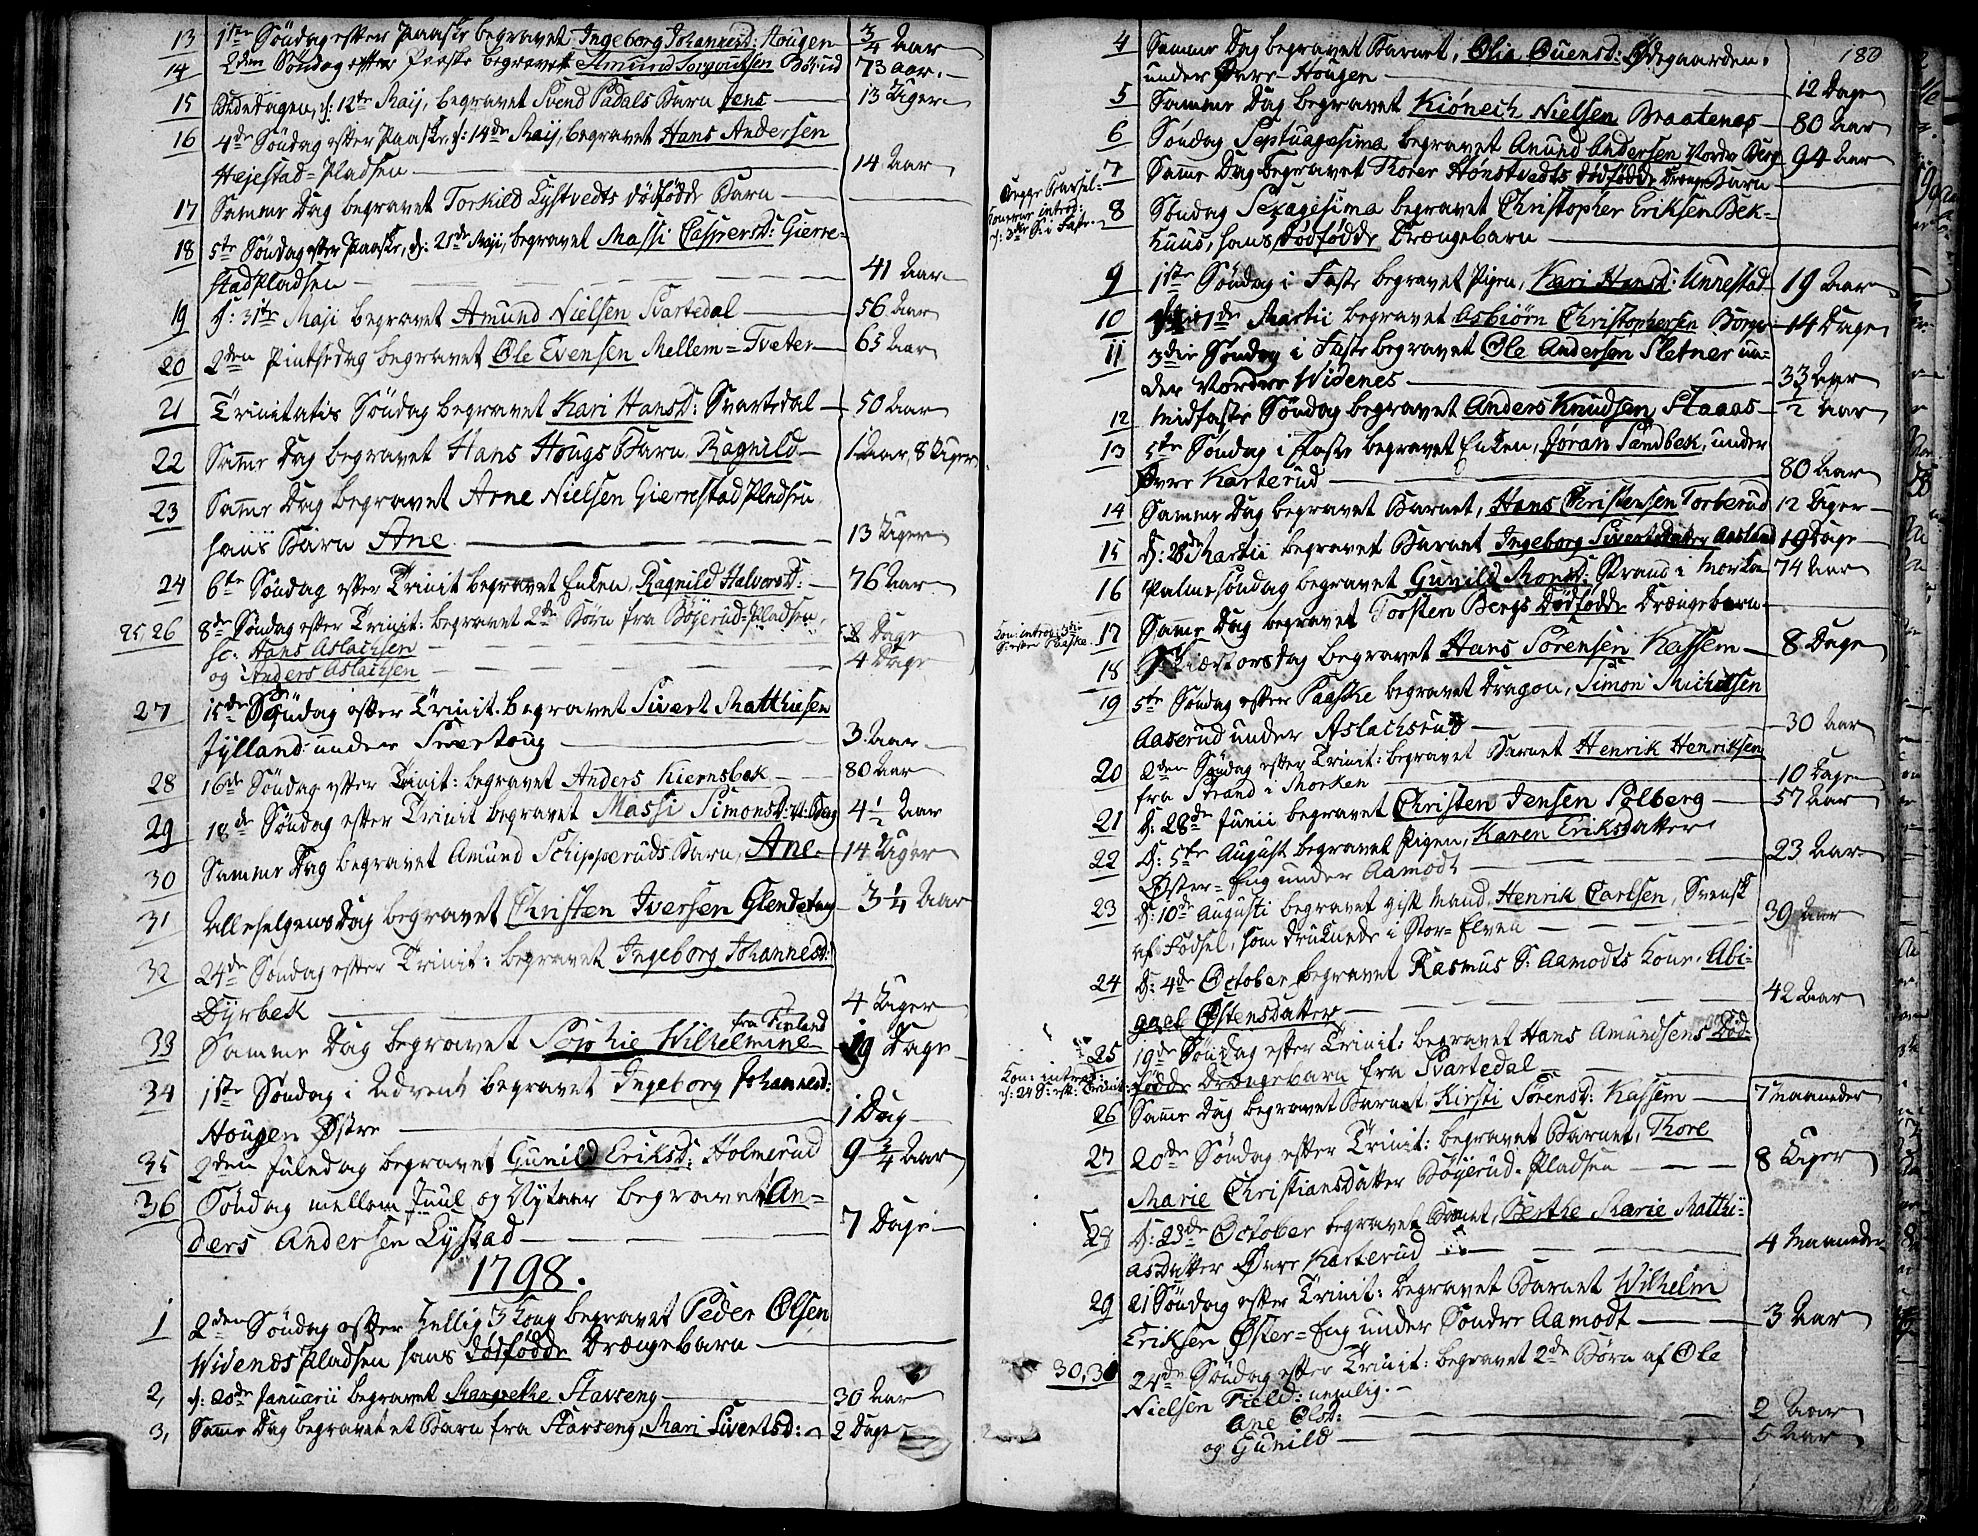 13 1ste Søndag efter Paaske begravet Ingeborg Johannesd: Hougen 3/4 Aar
14 2den Søndag efter Paaske begravet Amund Børud 73 Aar.
15 Bededagen, d: 12te Maij, begravet Svend Barn Jens 13 Uger
16 4de Søndag efter Paaske, d: 14de Maij, begravet Hans Andersen
Hejestad=Pladsen 14 Aar
17 Samme Dag begravet Torkild Lystvedts dødfødde Barn
18 5te Søndag efter Paaske, d: 21de Maji, begravet Massi Caspersd: Gierre-
stadPladsen 41 Aar
19 d: 31te Maji begravet Amund Nielsen Svartedal 56 Aar
20 2den Pintsedag begravet Ole Evensen Mellem=Tveter 65 Aar
21 Trinitatis Søndag begravet Kari Hansd: Svartedal 50 Aar
22 Samme Dag begravet Hans Hougs Barn Ragnild 1 Aar, 8 Uger
23 Samme Dag begravet Arne Nielsen GierrestadPladsen
hans Barn Ane 13 Uger
24 6te Søndag efter Trinit begravet Enken Ragnild Halvorsd: 76 Aar
25, 26 8de Søndag efter Trinit: begravet 2de Børn fra Bøjerud=Pladsen,
sc: Hans Aslachsen 8 Dage
og Anders Aslachsen 4 Dage
27 15de Søndag efter Trinit. begravet Sivert Matthisen
Jylland under Svertoug 3 Aar
28 16de Søndag efter Trinit: begravet Anders Kiernsbek 80 Aar
29 18de Søndag efter Trinit begravet Massi Simonsd: 4 1/2 Aar
30 Samme Dag begravet Amund Schipperuds Barn, Ane 14 Uger
31 Allehelgens Dag begravet Christen Iversen Glendetang 3 1/4 Aar
32 24de Søndag efter Trinit: begravet Ingeborg Johannesd:
Dyrbek 4 Uger
fra Finland
33 Samme Dag begravet Sophie Wilhelmine 19 Dage
34 1ste Søndag i Advent begravet Ingeborg Johannesd:
Hougen Østre 1 Dag
35 2den Juledag begravet Gunild Eriksd: Holmerud 9 3/4 Aar
36 Søndag mellem Juul og Nytaar begravet An=
ders Andersen Lystad 7 Dage
1798.
1 2den Søndag efter Hellig 3 Kong begravet Peder Olsen
WidenæsPladsen hans dødfødde Drængebarn
2, d: 20de Januarii begravet Margrethe Stavseng 30 Aar
3, Samme Dag begravet et Barn fra Stavseng, Mari Sivertsd: 2 Dage
180
4 Samme Dag begravet Barnet, Olia Ødegaarden.
under Øvre Hougen 12 Dage
5 Samme Dag begravet Kiønech Nielsen Braatenes 80 Aar
6 Søndag Septuagesima begravet Anund Andersen Vordre Berg 94 Aar
7 Samme Dag begravet Thorer Hønstvedts dødfødde DrængeBarn
Begge Barsel=
Konerne introd:
d: 3die S: i Faste
8 Søndag Sexagesima begravet Christopher Eriksen Bek=
huus, hans dødfødde Drængebarn
9 1ste Søndag i Faste begravet Pigen, Kari Hansd: Unnestad 19 Aar
10 d: 1de Martii begravet Asbiørn Christophersen Borger 14 Dage
11 3die Søndag i Faste begravet Ole Andersen Sletner un=
der Vordre Widenes 33 Aar
12 Midfaste Søndag begravet Anders Knudsen Staaas 1/2 Aar
13 5te Søndag i Faste begravet Enken, Jøran Sandbek, under
Øvre Karterud 80 Aar
14 Samme Dag begravet Barnet, Hans Christensen Torberud 12 Uger
15 d: 28de Martii begravet Barnet Ingeborg Sivertsdatter Aasland 19 Dage
16 Palmesøndag begravet Gunild Monsd: Strand i Morken 74 Aar
Kon: introd: 3die
S: efter Paaske
17 Samme Dag begravet Torsten Bergs Dødfødde Drængebarn
18 Skiærtorsdag begravet Hans Sørensen Kassem 8 Dage
19 5te Søndag efter Paaske begravet Dragon, Simon Michelsen
Aaserud under Aslachsrud 30 Aar
20 2den Søndag efter Trinit: begravet Barnet Henrik Henriksen
fra Strand i Morken 10 Dage
21 d: 28de Junii begravet Christen Jensen Solberg 57 Aar
22 d: 5te August begravet Pigen, Karen Eriksdatter
Øster=Eng under Aamodt 23 Aar
23 d: 10de Augusti begravet gift Mand, Henrik Carlsen, Svensk
af Fødsel, som druknede i Stor=Elven 39 Aar
24 d: 4de October begravet Rasmus S: Aamodts Kone, Abi=
gael Østensdatter 42 Aar
25 19de Søndag efter Trinit: begravet Hans Amundsens Død=
Kon: introd:
d: 24 S: eft: Trinit:
fødde Drængebarn fra Svartedal
26 Samme Dag begravet Barnet Kirsti Sørensd: Kassem 7 Maaneder
27 20de Søndag efter Trinit: begravet Barnet, Thore
Marie Christiansdatter Bøjerud-Pladsen 8 Uger
28 d: 23de October begravet Barnet, Berthe Marie Matthi=
asdatter Øvre Karterud 4 Maaneder
29 21 Søndag efter Trinit: begravet Barnet Wilhelm
Eriksen Øster=Eng under Søndre Aamodt 3 Aar
30, 31 24de Søndag efter Trinit: begravet 2de Børn af Ole
Nielsen Field: nemlig.
Ane Olsd: 2 Aar
og Gunild 5 Aar